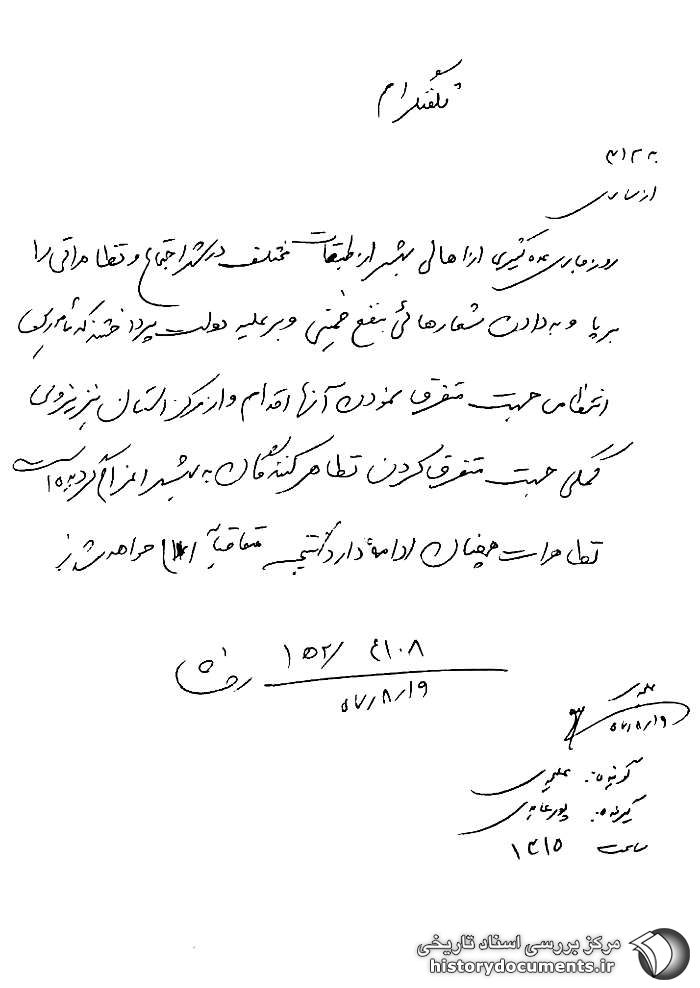 تلفنگرام
به ۳۱۲
از ساری
روز جاری عده کثیری از اهالی بهشهر از طبقات مختلف در شهر اجتماع و تظاهراتی را
برپا و به دادن شعارهائی بنفع خمینی و بر علیه دولت پرداختند که مأمورین
انتظامی جهت متفرق نمودن آنها اقدام و از مرکز استان نیز نیروی
کمکی جهت متفرق کردن تظاهر کنندگان به بهشهر اعزام گردیده است
تظاهرات همچنان ادامه دارد نتیجه متعاقباً اعلام خواهد شد
۴۱۰۸ / ۱۵۲
۵۷/۸/۱۹
۵۷/۸/۱۹
گوینده:
گیرنده:
ساعت ۱۴۱۵
مرکز بررسی اسناد تاریخی
historydocuments.ir